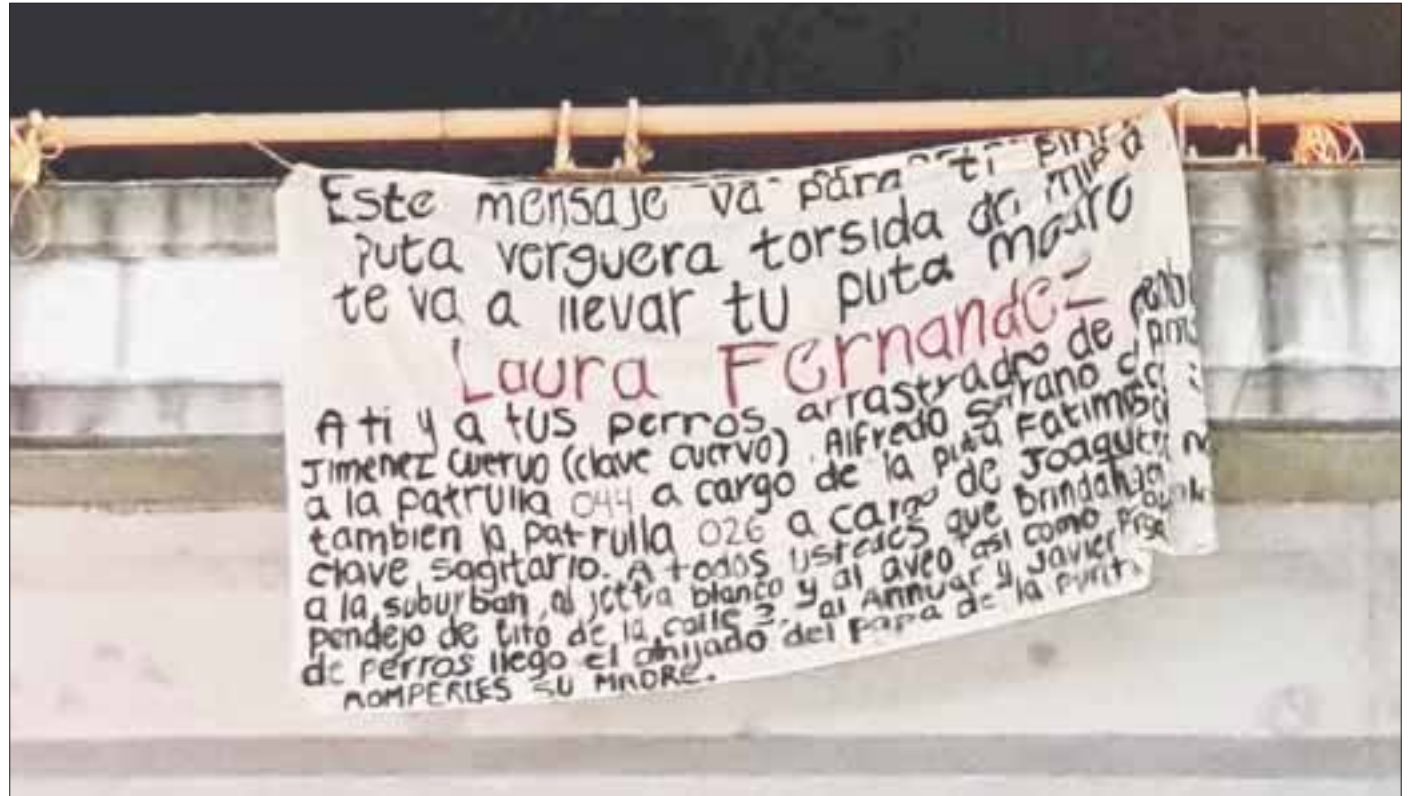 Este mensaje va para ti
puta verguera torsida de
te va a llevar tu puta madre
Laura Fernandez
A ti y a tus perros arrastrados de
Jimenez cuervo (clave cuervo). Alfredo Serrano
a la patrulla 044 a cargo de la puta Fatima
tambien la patrulla 026 a cargo de Joaquin
clave sagitario. A todos ustedes que brindan
a la suburban al jetta blanco y al aveo asi como
pendejo de tito de la calle 2. al Annuar y Javier
de perros llego el ahijado del papa de la
ROMPERLES SU MADRE.